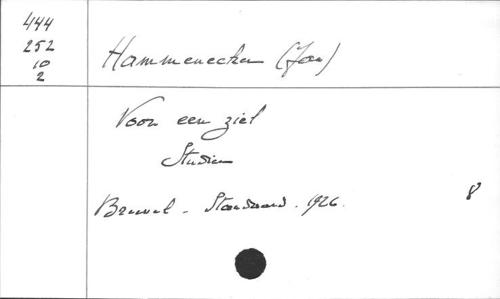 444
252
10
2
Hammenecker (Jan)
Voor een ziel
Studien
Brussel - Standaard. 1926.
8